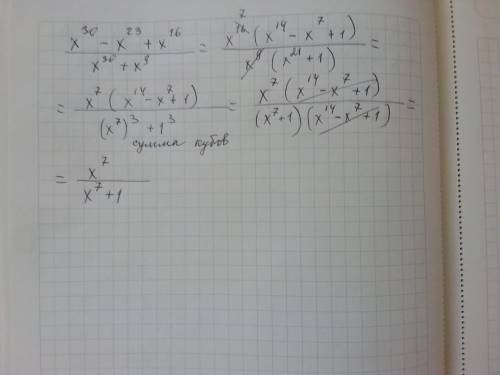 (x³⁰ - x²³ + x¹⁶)/(x³⁰ + x⁹) = x¹⁶ ⁷ (x¹⁴ - x⁷ + 1)/x⁹ (x²¹ + 1) =
= x⁷ (x¹⁴ - x⁷ + 1)/((x⁷)³ + 1³) = x⁷ (x¹⁴ - x⁷ + 1)/(x⁷+1)(x¹⁴ - x⁷ + 1) =
сумма кубов
= x⁷/(x⁷ + 1)